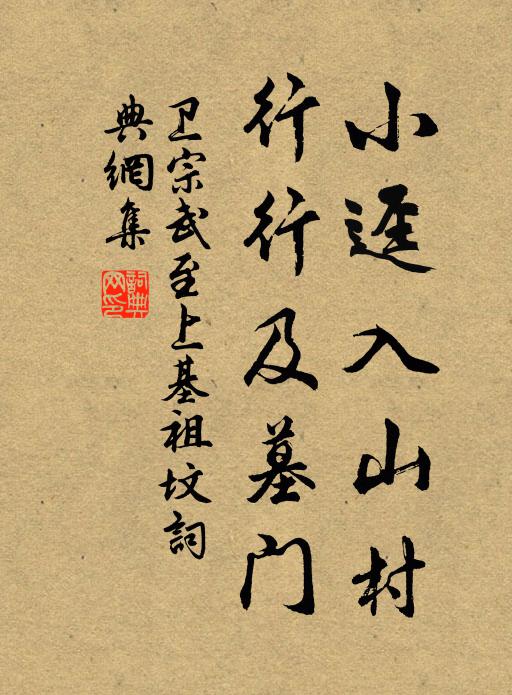 小迳入山村
行行及墓门
卫宗武至上基祖坟詞
典網集
詞典
网印